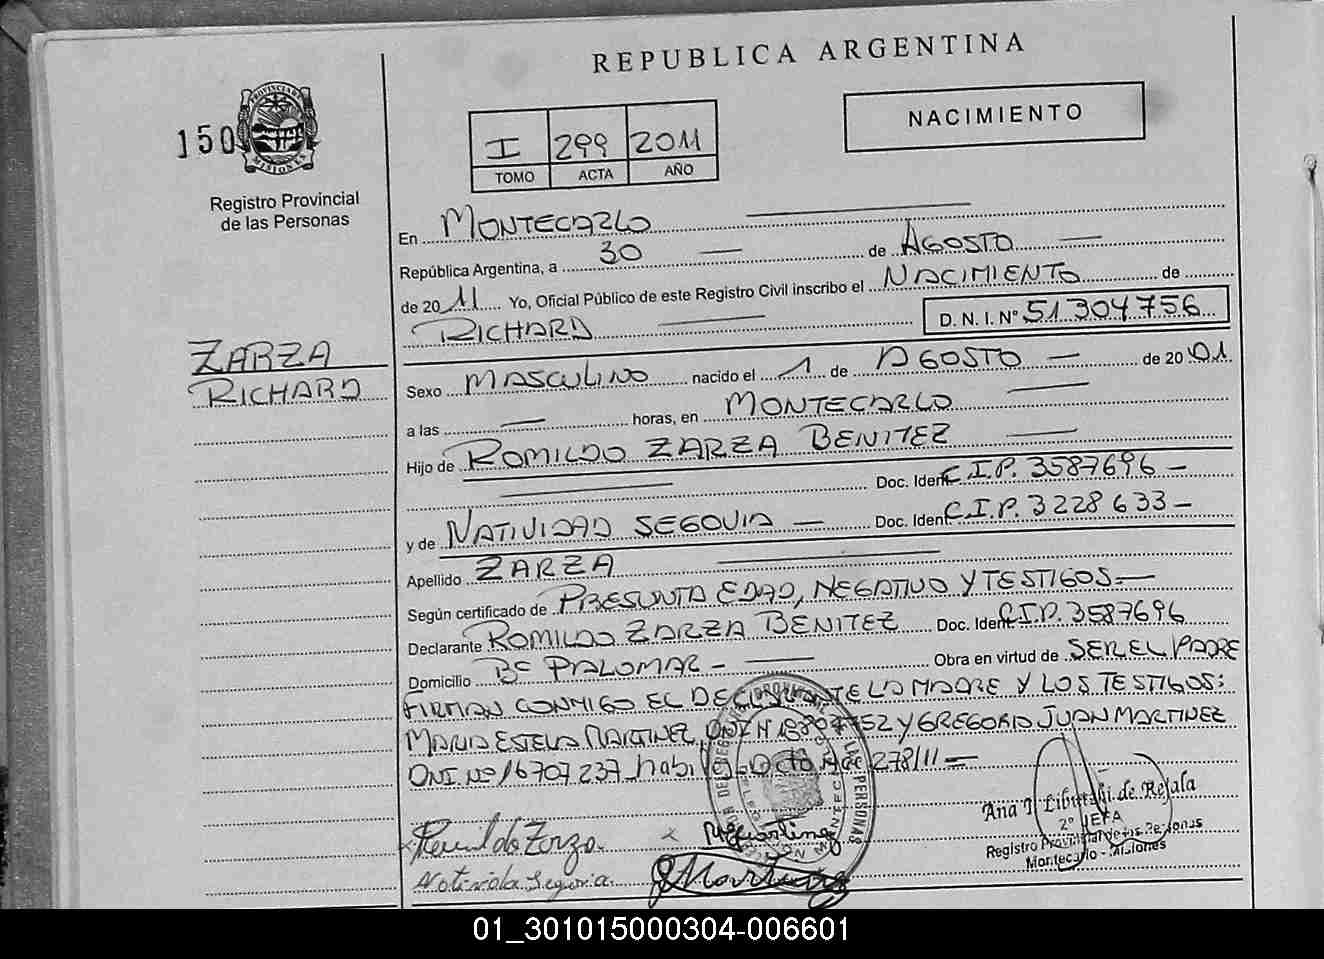 REPUBLICA ARGENTINA
150
PROVINCIA DE MISIONES
Registro Provincial
de las Personas
I 299 2011
TOMO ACTA AÑO
NACIMIENTO
ZARZA
RICHARD
En MONTECARLO
República Argentina, a 30 de AGOSTO
de 2011 Yo, Oficial Público de este Registro Civil inscribo el NACIMIENTO de
RICHARD D. N. I. Nº 51.304.756
Sexo MASCULINO nacido el 1 de AGOSTO de 2001
a las horas, en MONTECARLO
Hijo de ROMILDO ZARZA BENITEZ
Doc. Ident C.I.P. 3587696
y de NATIVIDAD SEGOVIA Doc. Ident C.I.P. 3228633
Apellido ZARZA
Según certificado de PRESUNTA EDAD, NEGATIVO Y TESTIGOS.
Declarante ROMILDO ZARZA BENITEZ Doc. Ident C.I.P. 3587696
Domicilio Bº PALOMAR Obra en virtud de SER EL PADRE
FIRMAN CONMIGO EL DECLARANTE LA MADRE Y LOS TESTIGOS:
MARIA ESTELA MARTINEZ, DNI Nº Y GREGORIO JUAN MARTINEZ
DNI Nº 16707237 278/11
Romildo Zarza
Natividad Segovia
Ana
2º JEFA
Registro Provincial de las Personas
Montecarlo - Misiones
01_301015000304-006601